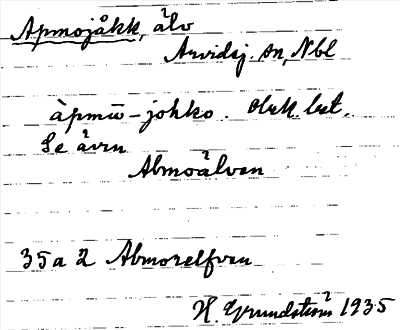 Apmojåkk, älv
Arvidsj. sn, Nbl
àpmū-johko.
Se även
Abmoälven
35 a 2 Abmorelfven
H. Grundström 1935